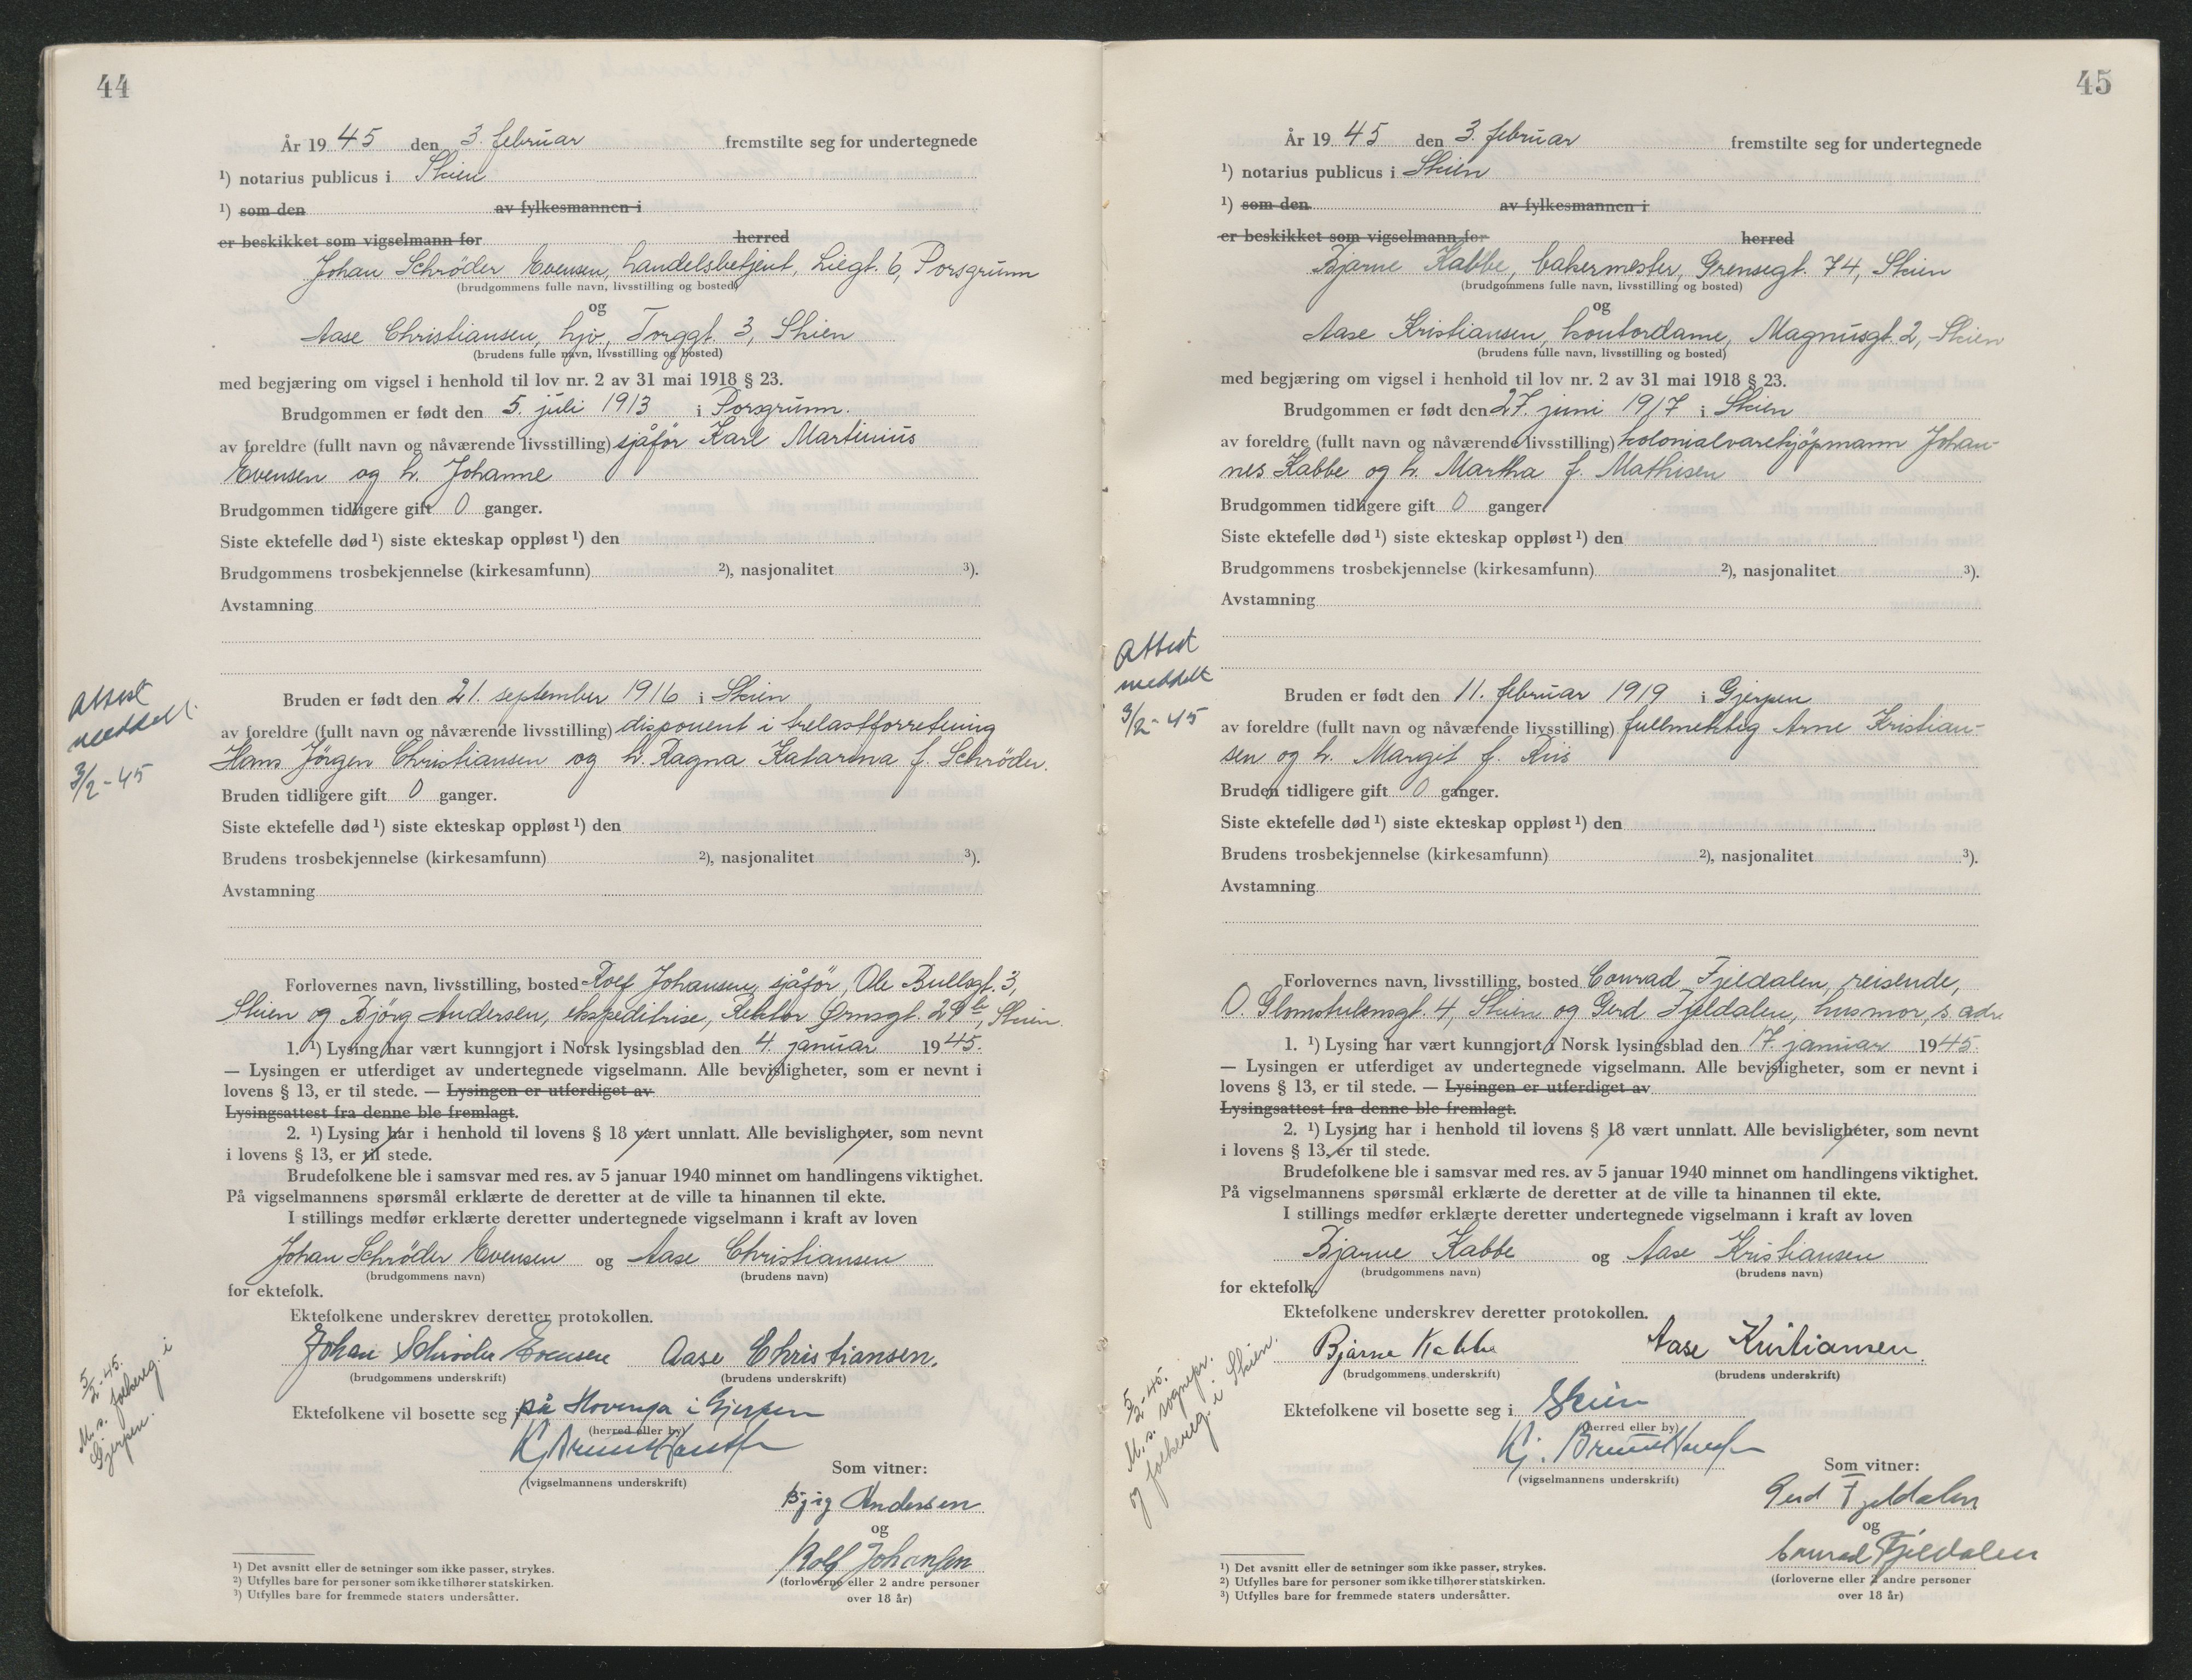 44
År 19 45 den 3. februar fremstilte seg for undertegnede
¹) notarius publicus i Skien
¹) som den av fylkesmannen i
er beskikket som vigselmann for herred
Johan Schröder Evensen, handelsbetjent, Liegt. 6, Porsgrunn
(brudgommens fulle navn, livsstilling og bosted)
og
Aase Christiansen, hjv, Torggt. 3, Skien
(brudens fulle navn, livsstilling og bosted)
med begjæring om vigsel i henhold til lov nr. 2 av 31 mai 1918 § 23.
Brudgommen er født den 5. juli 1913 i Porsgrunn.
av foreldre (fullt navn og nåværende livsstilling) sjåför Karl Martinius
Evensen og h. Johanne
Brudgommen tidligere gift 0 ganger.
Siste ektefelle død ¹) siste ekteskap oppløst ¹) den
Brudgommens trosbekjennelse (kirkesamfunn) ²), nasjonalitet ³).
Avstamning
Attest
meddelt
3/2-45
Bruden er født den 21. september 1916 i Skien
av foreldre (fullt navn og nåværende livsstilling) disponent i trelastforretning
Hans Jörgen Christiansen og h. Ragna Katarina f. Schröder.
Bruden tidligere gift 0 ganger.
Siste ektefelle død ¹) siste ekteskap oppløst ¹) den
Brudens trosbekjennelse (kirkesamfunn) ²), nasjonalitet ³).
Avstamning
Forlovernes navn, livsstilling, bosted Rolf Johansen, sjåför, Ole Bullsgt. 3,
Skien og Björg Andersen, ekspeditrise, Rektor Ørnsgt. Skien.
1. ¹) Lysing har vært kunngjort i Norsk lysingsblad den 4. januar 1945.
— Lysingen er utferdiget av undertegnede vigselmann. Alle bevisligheter, som er nevnt i
lovens § 13, er til stede. — Lysingen er utferdiget av
Lysingsattest fra denne ble fremlagt.
2. ¹) Lysing har i henhold til lovens § 18 vært unnlatt. Alle bevisligheter, som nevnt
i lovens § 13, er til stede.
Brudefolkene ble i samsvar med res. av 5 januar 1940 minnet om handlingens viktighet.
På vigselmannens spørsmål erklærte de deretter at de ville ta hinannen til ekte.
I stillings medfør erklærte deretter undertegnede vigselmann i kraft av loven
Johan Schröder Evensen og Aase Christiansen
(brudgommens navn) (brudens navn)
for ektefolk.
Ektefolkene underskrev deretter protokollen.
Johan Schrøder Evensen Aase Christiansen.
(brudgommens underskrift) (brudens underskrift)
5/2-45.
M. s. folkereg. i
Gjerpen.
Ektefolkene vil bosette seg i på Hovenga i Gjerpen
(herred eller by)
(vigselmannens underskrift)
Som vitner:
Bjørg Andersen
og
Rolf Johansen
(forloverne eller 2 andre personer
over 18 år)
¹) Det avsnitt eller de setninger som ikke passer, strykes.
²) Utfylles bare for personer som ikke tilhører statskirken.
³) Utfylles bare for fremmede staters undersåtter.
45
År 19 45 den 3. februar fremstilte seg for undertegnede
¹) notarius publicus i Skien
¹) som den av fylkesmannen i
er beskikket som vigselmann for herred
Bjarne Kabbe, bakermester, Grensegt. 74, Skien
(brudgommens fulle navn, livsstilling og bosted)
og
Aase Kristiansen, kontordame, Magnusgt. 2, Skien
(brudens fulle navn, livsstilling og bosted)
med begjæring om vigsel i henhold til lov nr. 2 av 31 mai 1918 § 23.
Brudgommen er født den 27. juni 1917 i Skien
av foreldre (fullt navn og nåværende livsstilling) kolonialvarekjöpmann Johan-
nes Kabbe og h. Martha f. Mathisen
Brudgommen tidligere gift 0 ganger.
Siste ektefelle død ¹) siste ekteskap oppløst ¹) den
Brudgommens trosbekjennelse (kirkesamfunn) ²), nasjonalitet ³).
Avstamning
Attest
meddelt
3/2-45
Bruden er født den 11. februar 1919 i Gjerpen
av foreldre (fullt navn og nåværende livsstilling) fullmektig Arne Kristian-
sen og h. Margit f. Riis
Bruden tidligere gift 0 ganger.
Siste ektefelle død ¹) siste ekteskap oppløst ¹) den
Brudens trosbekjennelse (kirkesamfunn) ²), nasjonalitet ³).
Avstamning
Forlovernes navn, livsstilling, bosted Conrad Fjeldalen, reisende,
O. Glomstulensgt. 4, Skien og Gerd Fjeldalen, husmor, s. adr.
1. ¹) Lysing har vært kunngjort i Norsk lysingsblad den 17. januar 1945.
— Lysingen er utferdiget av undertegnede vigselmann. Alle bevisligheter, som er nevnt i
lovens § 13, er til stede. — Lysingen er utferdiget av
Lysingsattest fra denne ble fremlagt.
2. ¹) Lysing har i henhold til lovens § 18 vært unnlatt. Alle bevisligheter, som nevnt
i lovens § 13, er til stede.
Brudefolkene ble i samsvar med res. av 5 januar 1940 minnet om handlingens viktighet.
På vigselmannens spørsmål erklærte de deretter at de ville ta hinannen til ekte.
I stillings medfør erklærte deretter undertegnede vigselmann i kraft av loven
Bjarne Kabbe og Aase Kristiansen
(brudgommens navn) (brudens navn)
for ektefolk.
Ektefolkene underskrev deretter protokollen.
Bjarne Kabbe Aase Kristiansen.
(brudgommens underskrift) (brudens underskrift)
5/2-45.
M. s. sognepr.
og folkereg. i Skien.
Ektefolkene vil bosette seg i Skien
(herred eller by)
(vigselmannens underskrift)
Som vitner:
Gerd Fjeldalen
og
Conrad Fjeldalen
(forloverne eller 2 andre personer
over 18 år)
¹) Det avsnitt eller de setninger som ikke passer, strykes.
²) Utfylles bare for personer som ikke tilhører statskirken.
³) Utfylles bare for fremmede staters undersåtter.